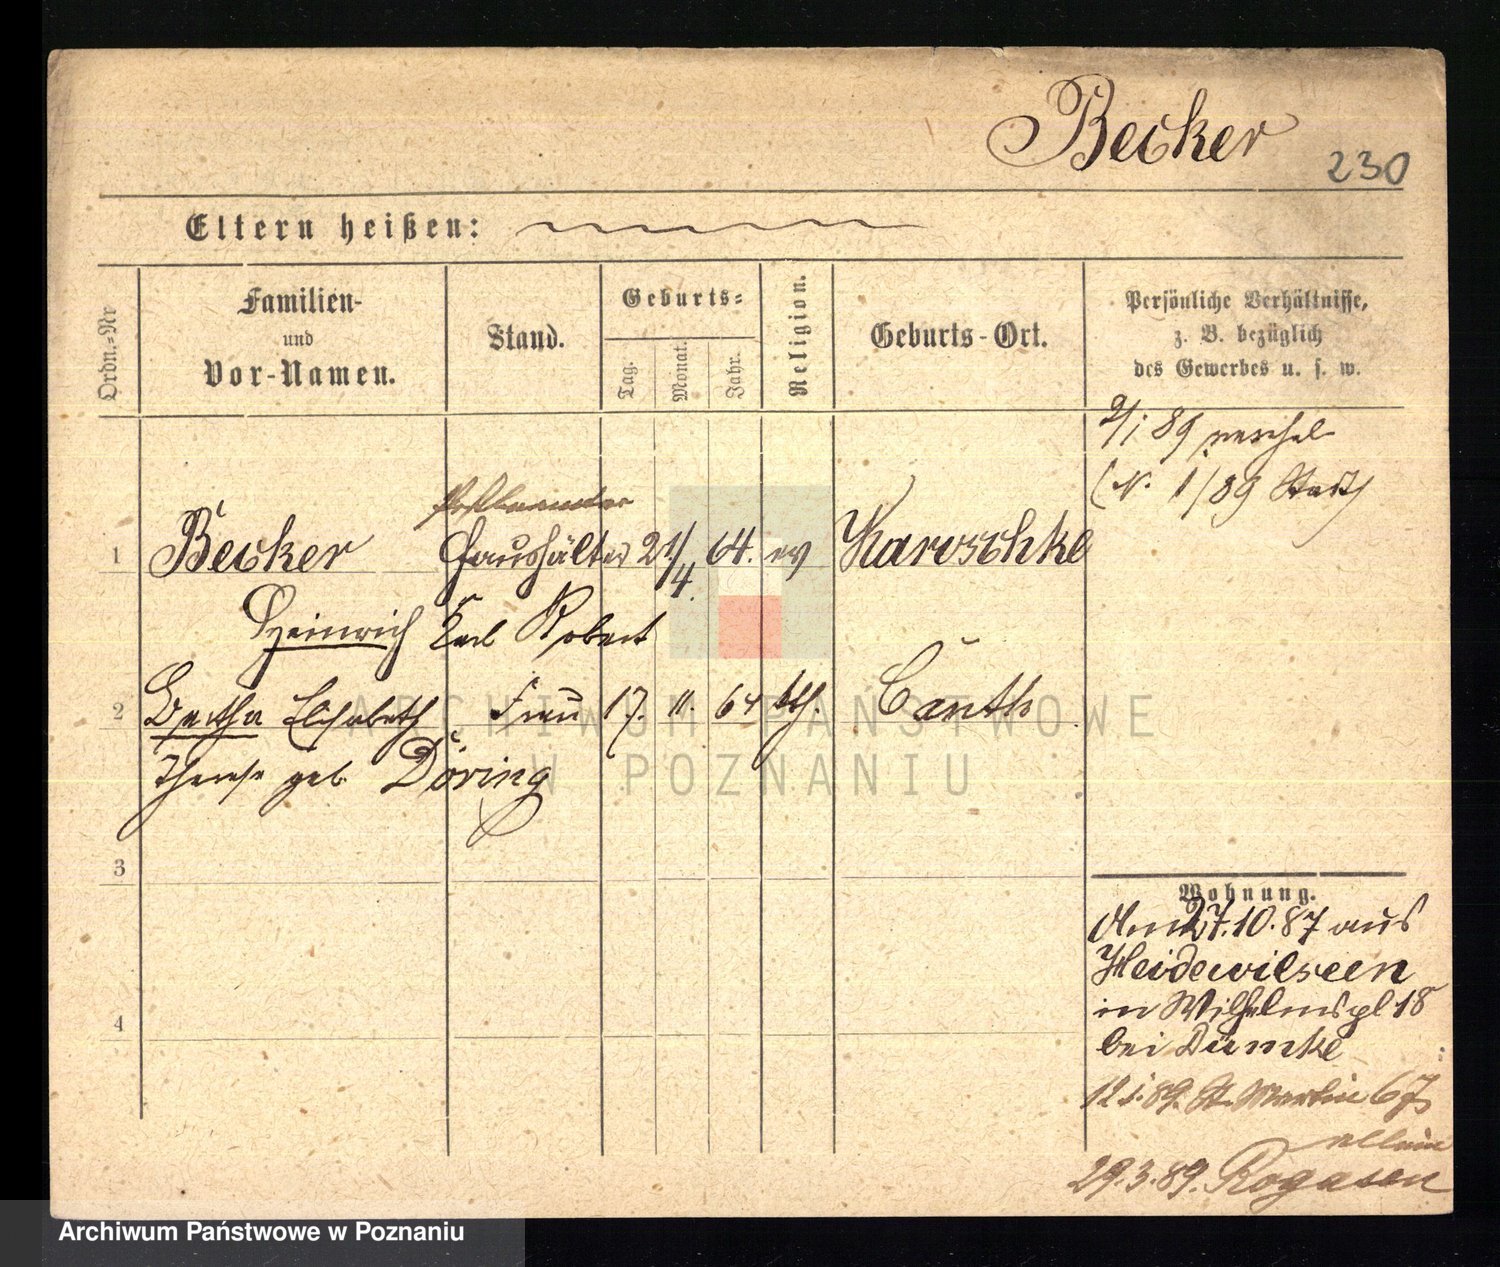 Becker
230
Eltern heißen:
Ordn.-Nr
Familien-
und
Vor-Namen.
Stand.
Geburts-
Tag.
Monat.
Jahr.
Religion.
Geburts-Ort.
Persönliche Verhältnisse,
z. B. bezüglich
des Gewerbes u. s. w.
2/1 89 verehel
(N. 1/89 Stadt)
1 Becker Haushälter 21/4 64. ev Karoschke
Heinrich Karl Robert
2 Bertha Elisabeth Frau 17. 11. 64 kth. Canth
Therese geb. Döring
3
4
Wohnung.
Am 27.10.87 aus
Heidewilxen
in Wilhelmspl 18
bei Dümke
12.1.89. St. Martin 67
allein
29.3.89. Rogasen
ARCHIWUM PAŃSTWOWE
W POZNANIU
Archiwum Państwowe w Poznaniu